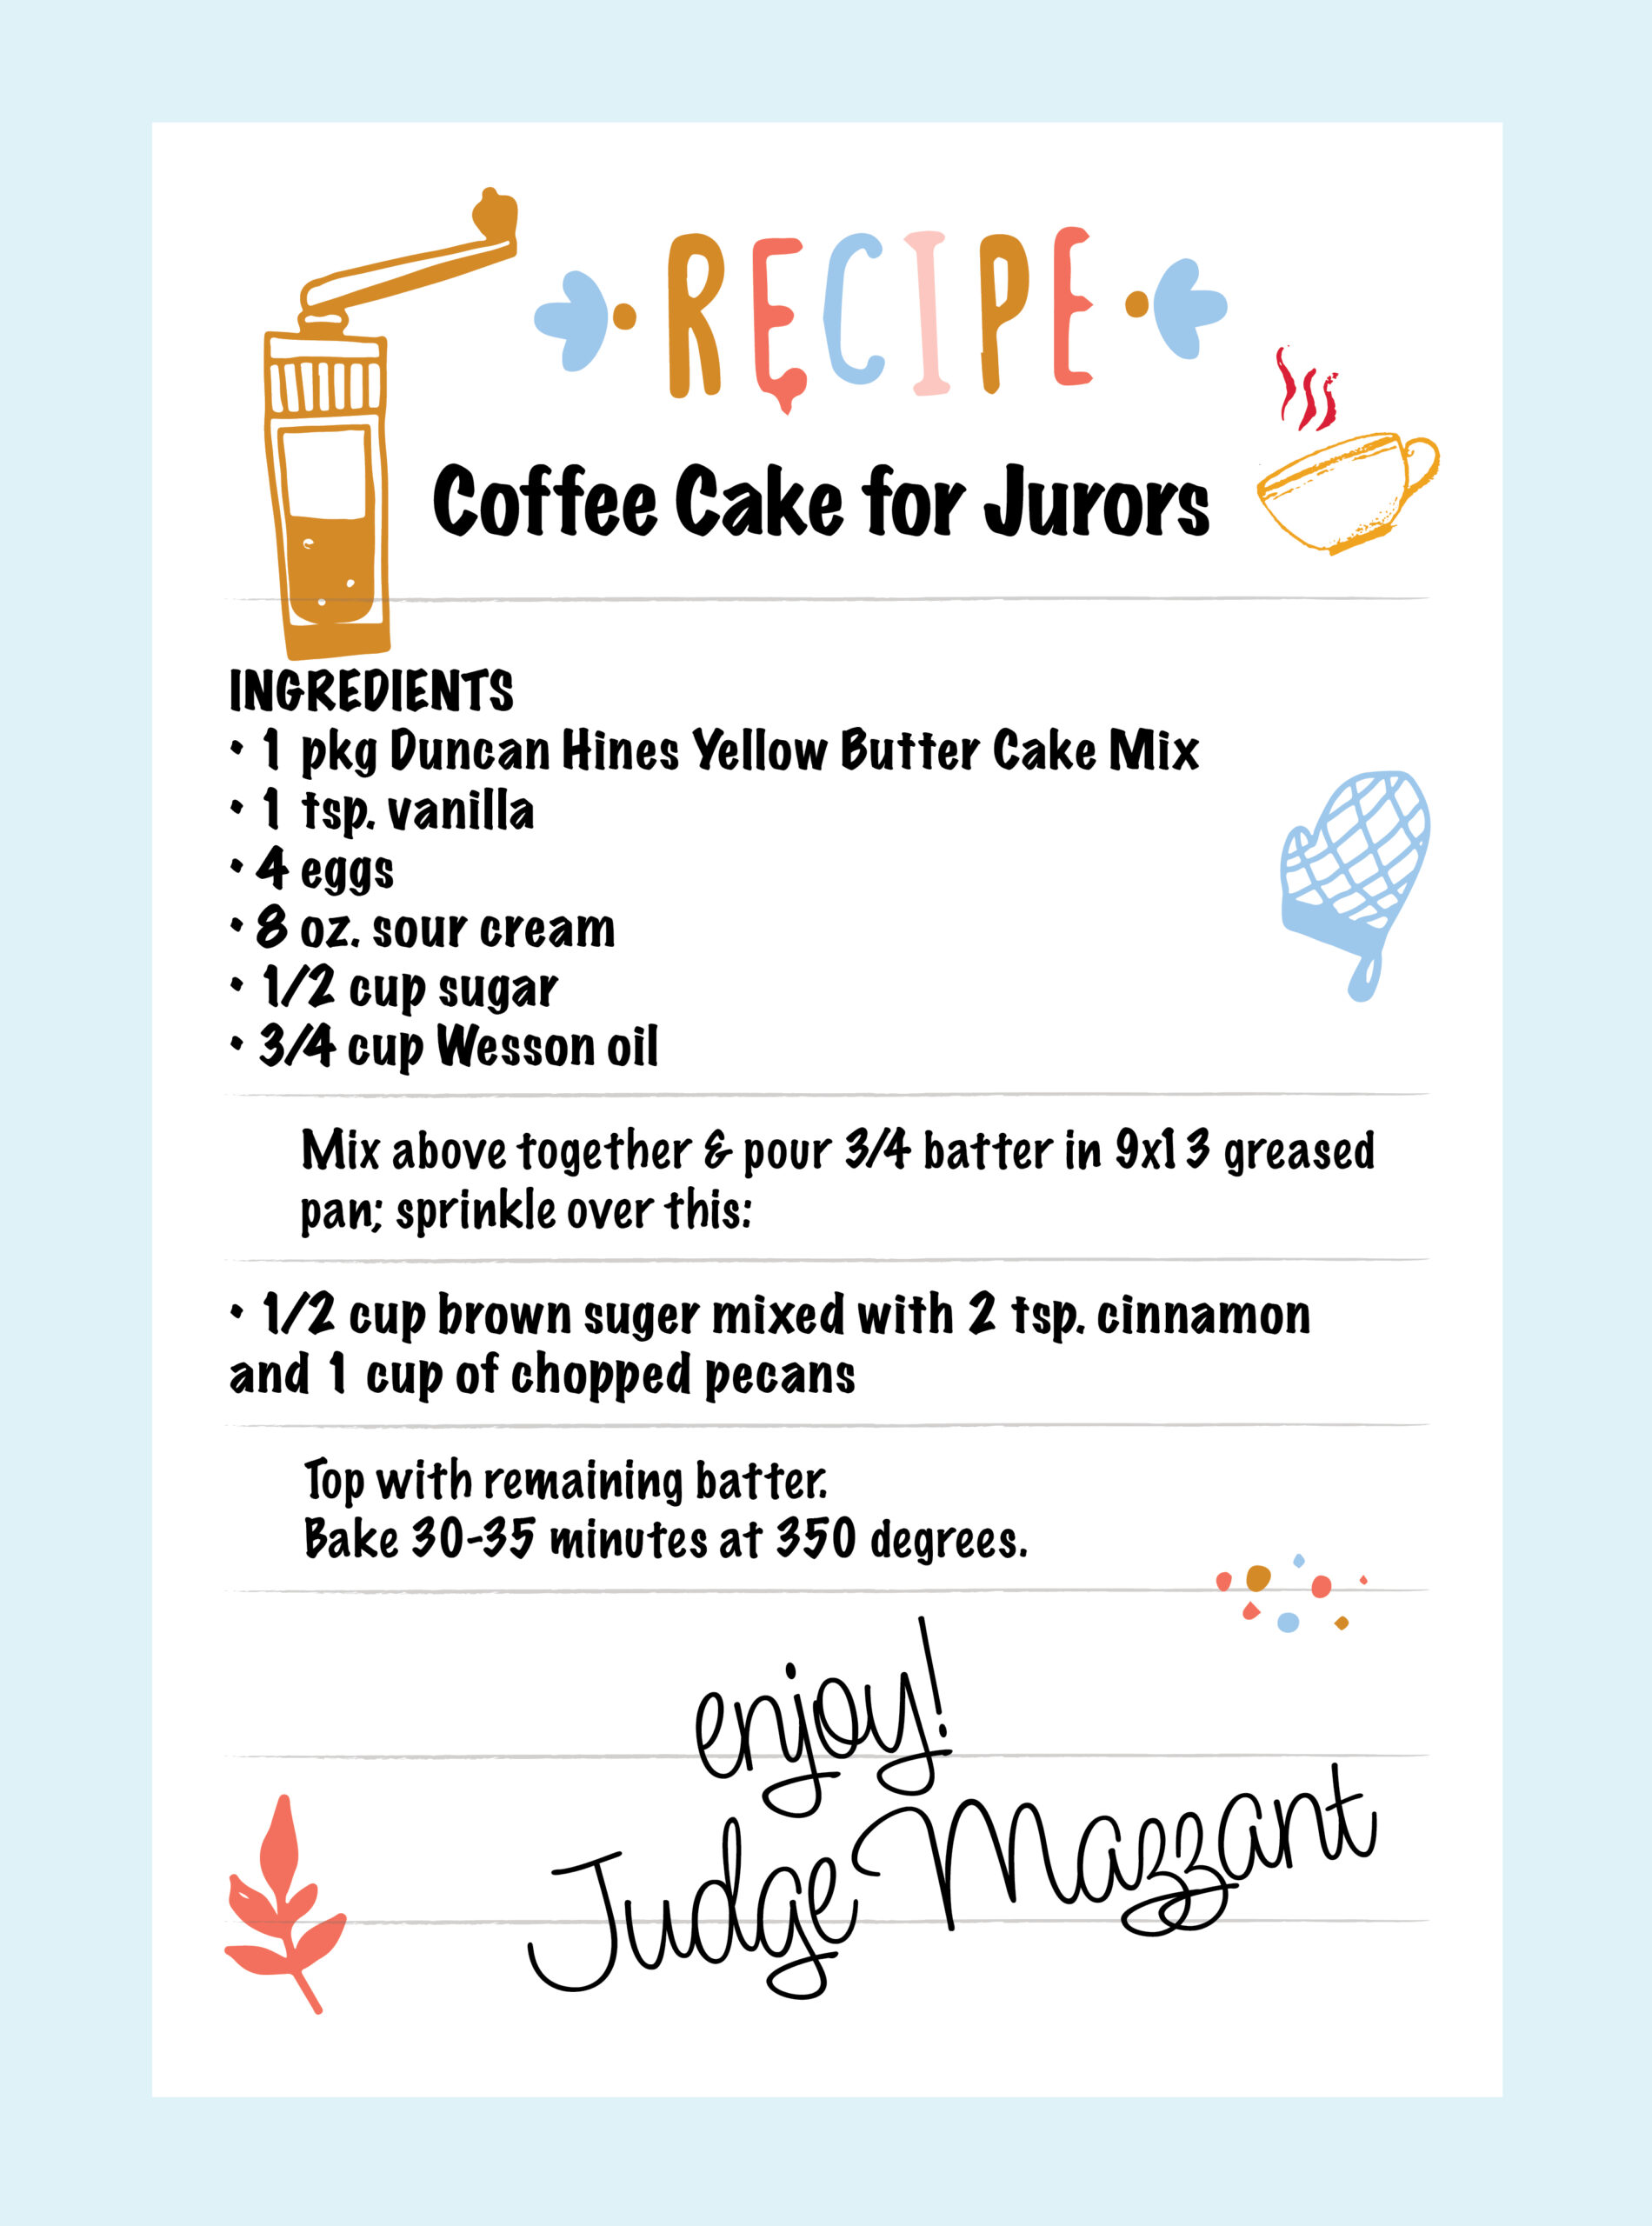 RECIPE
Coffee Cake for Jurors
INGREDIENTS
• 1 pkg Duncan Hines Yellow Butter Cake Mix
• 1 tsp. vanilla
• 4 eggs
• 8 oz. sour cream
• 1/2 cup sugar
• 3/4 cup Wesson oil
Mix above together & pour 3/4 batter in 9x13 greased
pan; sprinkle over this:
• 1/2 cup brown suger mixed with 2 tsp. cinnamon
and 1 cup of chopped pecans
Top with remaining batter.
Bake 30-35 minutes at 350 degrees.
enjoy!
Judge Mazzant